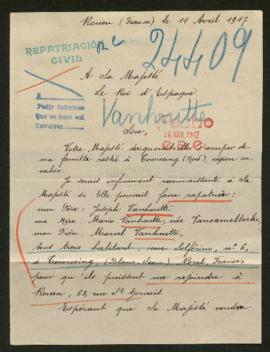 Rouen (France) le 11 Avril 1917
REPATRIACIÓN
CIVIL
24409
A Sa Majesté
Le Roi d'Espagne
A
Pedir informes
Que se hara asi
Devolver
Vanhoutte
26 ABR. 1917
Sire,
Votre Majesté daignerait-elle s'occuper de
ma famille restée à Tourcoing (Nord), région en-
vahie.
Je serais infiniment reconnaissante à Sa
Majesté si Elle pouvait faire rapatrier:
mon Père: Joseph Vanhoutte
ma Mère: Marie Vanhoutte, née
mon Frère: Marcel Vanhoutte,
tous trois habitant rue Solférino, n° 6,
à Tourcoing, (Blanc-Seau) Nord, France
pour qu'ils puissent me rejoindre à
Rouen, 68, rue St Gervais.
Espérant que Sa Majesté voudra